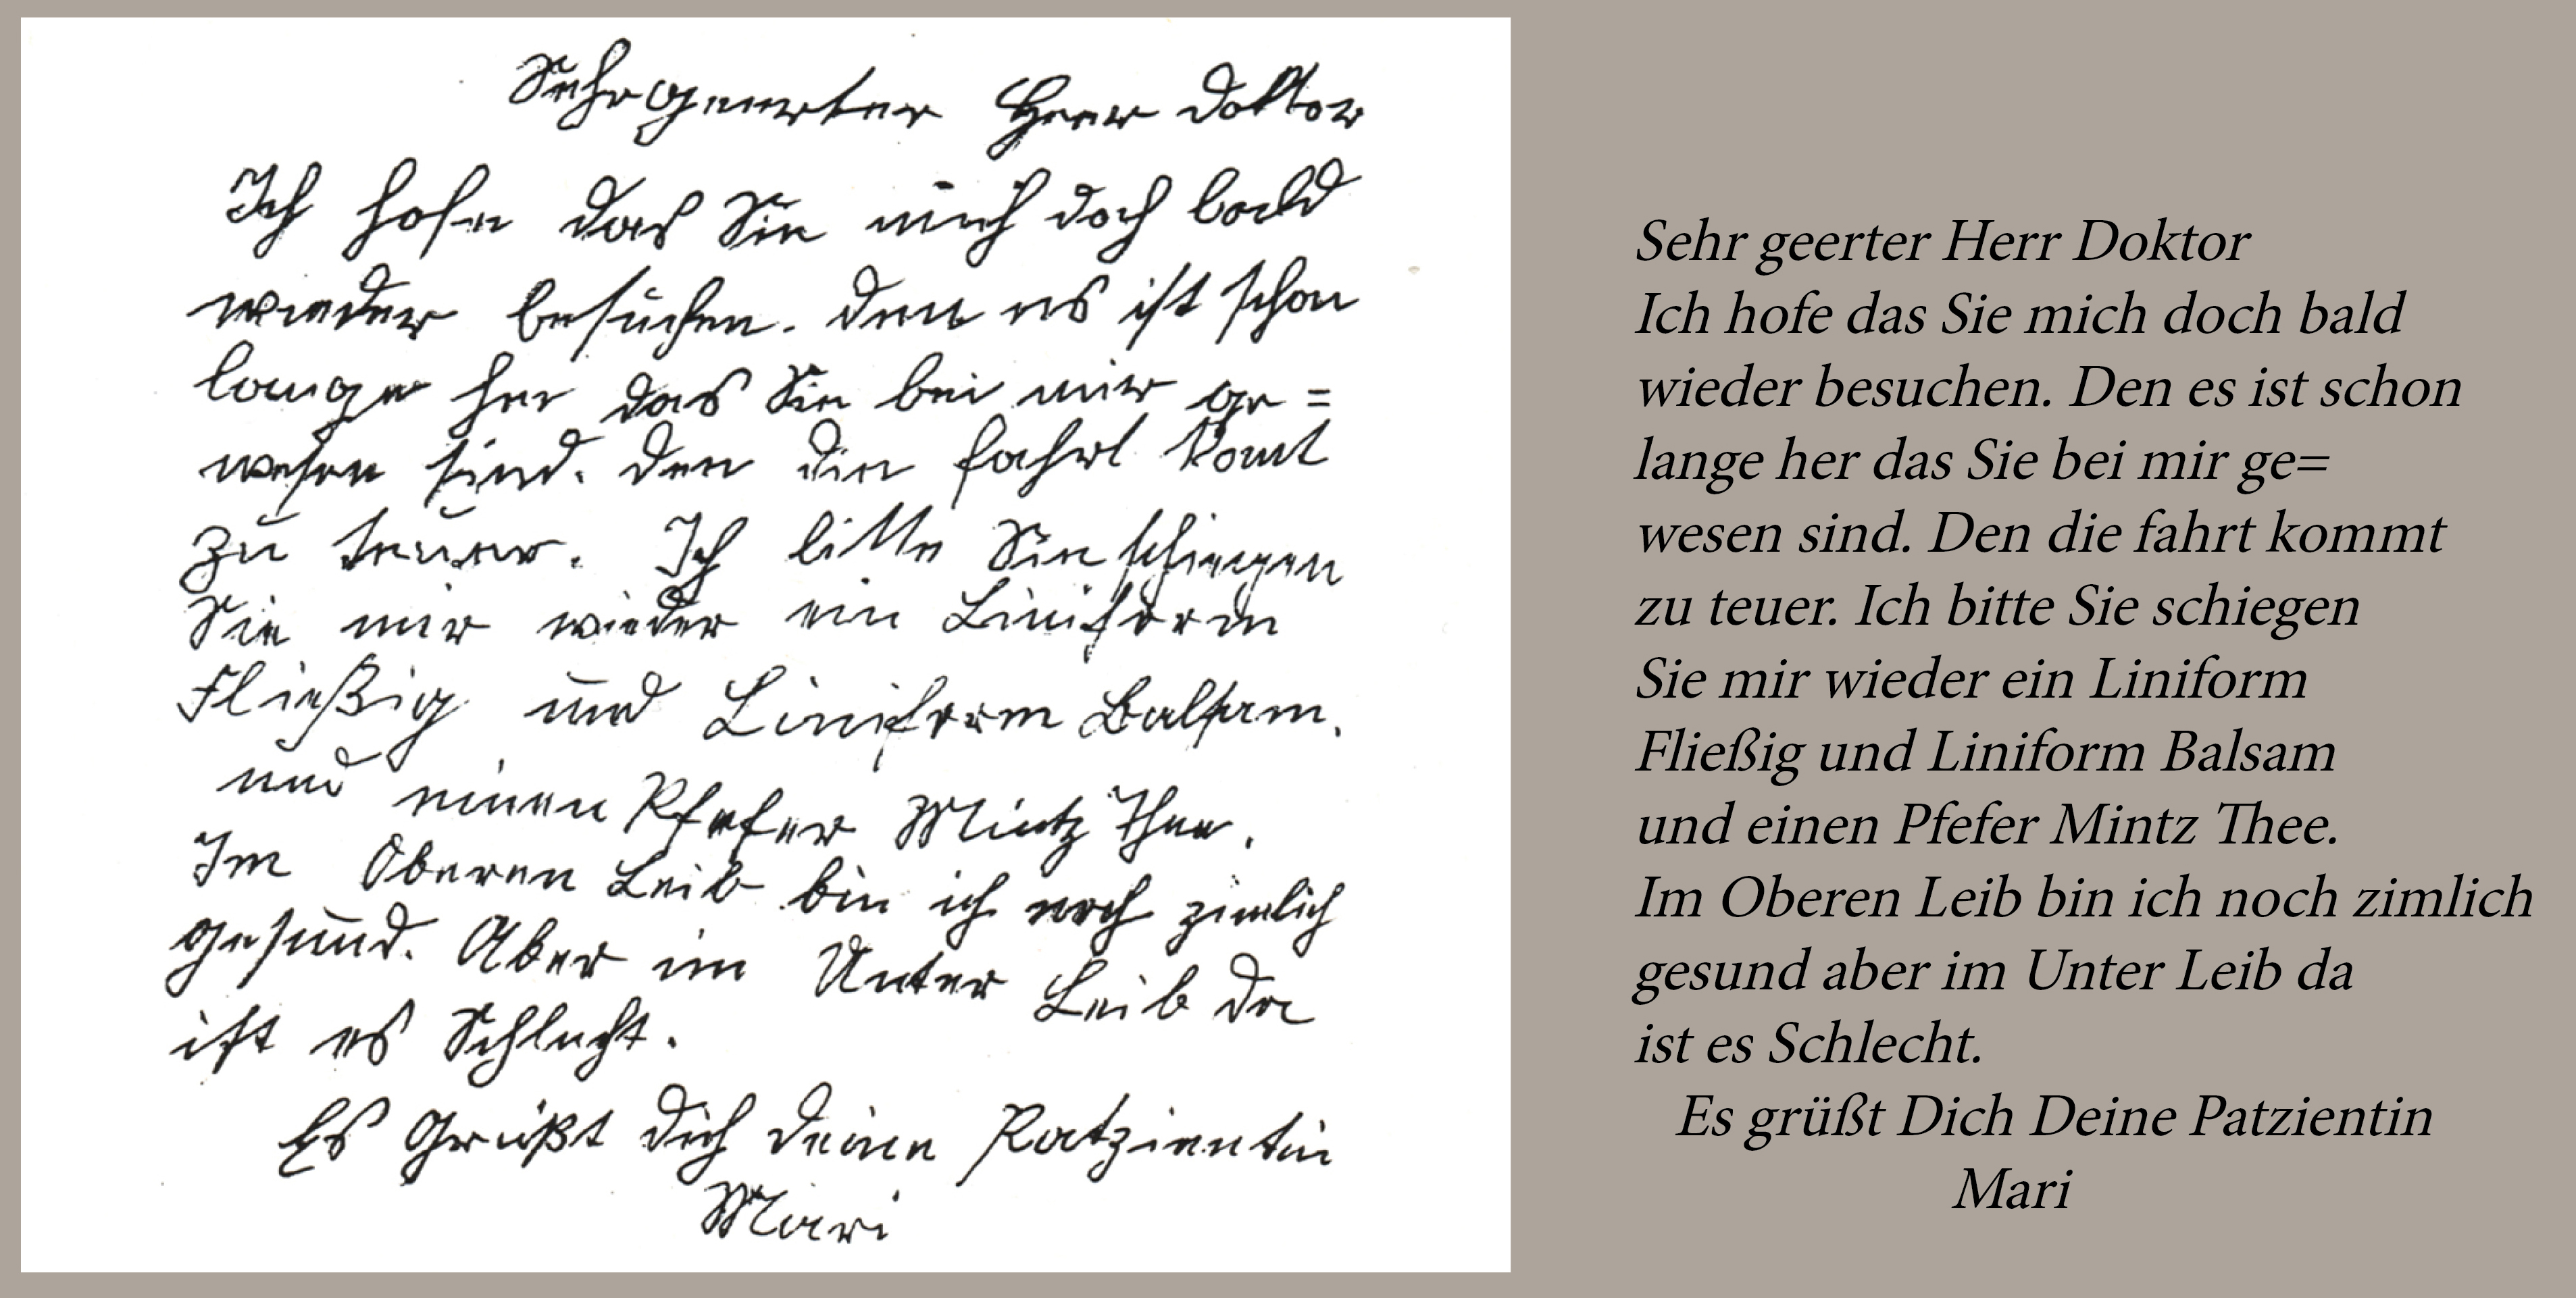 Sehr geerter Herr Doktor
Ich hofe das Sie mich doch bald
wieder besuchen. Den es ist schon
lange her das Sie bei mir ge=
wesen sind. Den die fahrt komt
zu teuer. Ich bitte Sie schiegen
Sie mir wieder ein Liniform
Fließig und Liniform Balsam.
und einen Pfefer Mintz Thee.
Im Oberen Leib bin ich noch zimlich
gesund. Aber im Unter Leib da
ist es Schlecht.
Es grüßt Dich Deine Patzientin
Mari
Sehr geerter Herr Doktor
Ich hofe das Sie mich doch bald
wieder besuchen. Den es ist schon
lange her das Sie bei mir ge=
wesen sind. Den die fahrt kommt
zu teuer. Ich bitte Sie schiegen
Sie mir wieder ein Liniform
Fließig und Liniform Balsam
und einen Pfefer Mintz Thee.
Im Oberen Leib bin ich noch zimlich
gesund aber im Unter Leib da
ist es Schlecht.
Es grüßt Dich Deine Patzientin
Mari